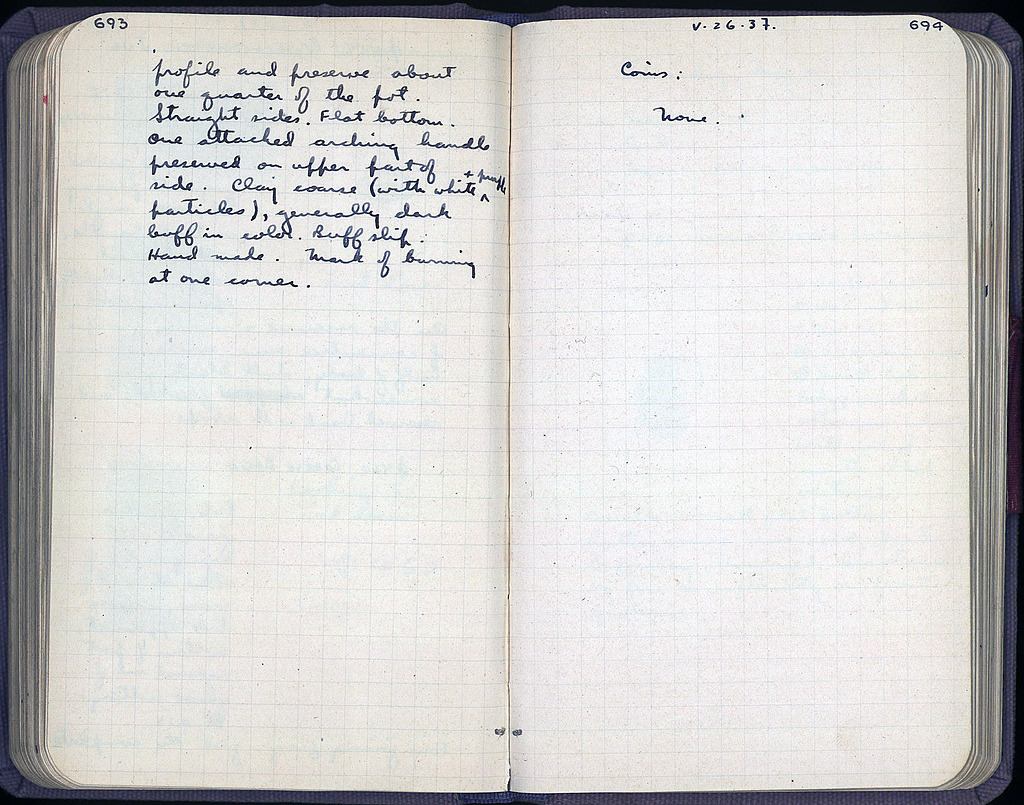 693
profile and preserve about
one quarter of the pot.
Straight sides. Flat bottom.
One attached arching handle
preserved on upper part of
side. Clay coarse (with white ^ + purple
particles), generally dark
buff in color. Buff slip.
Hand made. Mark of burning
at one corner.
V-26-37.
694
Coins:
None.